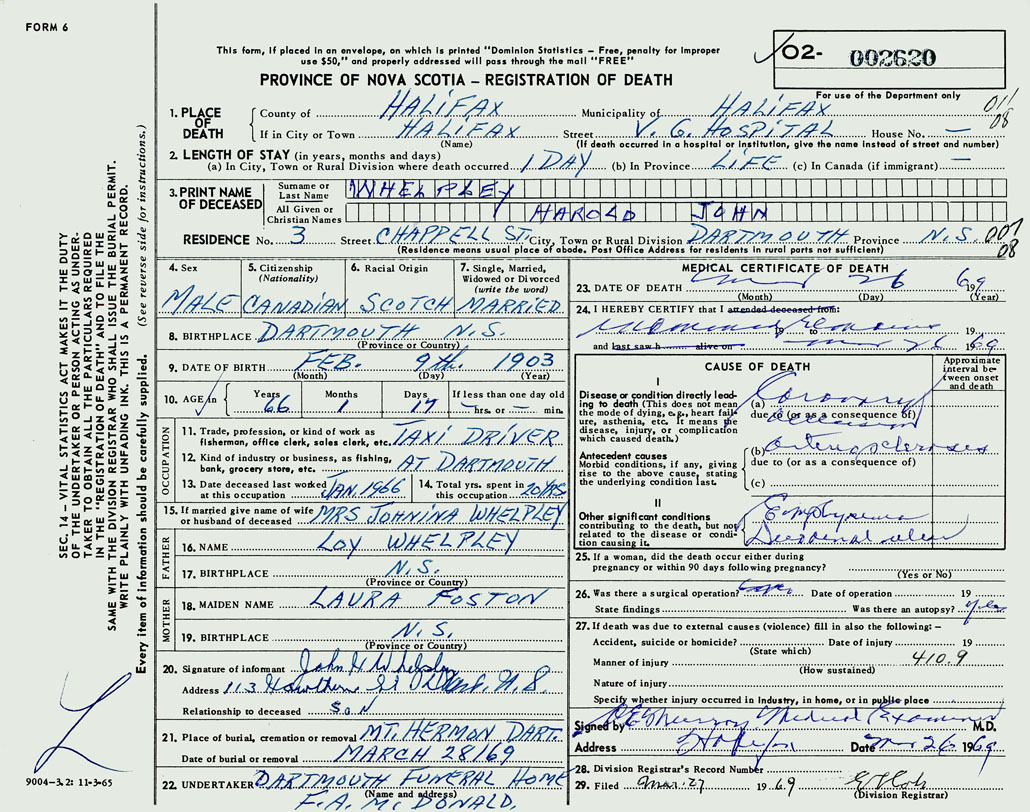 FORM 6
This form, if placed in an envelope, on which is printed "Dominion Statistics – Free, penalty for improper
use $50," and properly addressed will pass through the mail "FREE"
PROVINCE OF NOVA SCOTIA – REGISTRATION OF DEATH
O2- 002620
For use of the Department only
011
08
1. PLACE OF DEATH County of HALIFAX Municipality of HALIFAX
If in City or Town HALIFAX Street V. G. HOSPITAL House No. —
(Name) (If death occurred in a hospital or institution, give the name instead of street and number)
2. LENGTH OF STAY (in years, months and days)
(a) In City, Town or Rural Division where death occurred 1 DAY (b) In Province LIFE (c) In Canada (if immigrant) —
3. PRINT NAME OF DECEASED Surname or Last Name WHELPLEY
All Given or Christian Names HAROLD JOHN
RESIDENCE No. 3 Street CHAPPELL ST. City, Town or Rural Division DARTMOUTH Province N.S. 007
08
(Residence means usual place of abode. Post Office Address for residents in rural parts not sufficient)
4. Sex MALE
5. Citizenship (Nationality) CANADIAN
6. Racial Origin SCOTCH
7. Single, Married, Widowed or Divorced (write the word) MARRIED
8. BIRTHPLACE DARTMOUTH N.S.
(Province or Country)
9. DATE OF BIRTH FEB. 9th. 1903
(Month) (Day) (Year)
10. AGE in Years 66 Months 1 Days 17 If less than one day old — hrs. or — min.
OCCUPATION
11. Trade, profession, or kind of work as
fisherman, office clerk, sales clerk, etc. TAXI DRIVER
12. Kind of industry or business, as fishing,
bank, grocery store, etc. AT DARTMOUTH
13. Date deceased last worked at this occupation JAN 1966
14. Total yrs. spent in this occupation 20 YRS
15. If married give name of wife
or husband of deceased MRS JOHNINA WHELPLEY
FATHER
16. NAME LOY WHELPLEY
17. BIRTHPLACE N.S.
(Province or Country)
MOTHER
18. MAIDEN NAME LAURA FOSTON
19. BIRTHPLACE N.S.
(Province or Country)
20. Signature of informant John H Whelpley
Address 113 Hawthorne St Dart. N.S.
Relationship to deceased SON
21. Place of burial, cremation or removal MT. HERMON DART.
Date of burial or removal MARCH 28/69
22. UNDERTAKER DARTMOUTH FUNERAL HOME
(Name and address)
F.A. McDONALD.
MEDICAL CERTIFICATE OF DEATH
23. DATE OF DEATH 26 1969
(Month) (Day) (Year)
24. I HEREBY CERTIFY that I attended deceased from:
examined remains 19 to 19
and last saw h alive on 26 1969
CAUSE OF DEATH
Approximate interval between onset and death
I
Disease or condition directly leading to death (This does not mean
the mode of dying, e.g., heart failure, asthenia, etc. It means the
disease, injury, or complication
which caused death.)
(a) Coronary
due to (or as a consequence of)
occlusion
Antecedent causes
Morbid conditions, if any, giving
rise to the above cause, stating
the underlying condition last.
(b) arteriosclerosis
due to (or as a consequence of)
(c)
II
Other significant conditions
contributing to the death, but not
related to the disease or condition causing it.
Emphysema
Duodenal ulcer
25. If a woman, did the death occur either during
pregnancy or within 90 days following pregnancy?
(Yes or No)
26. Was there a surgical operation? Date of operation 19
State findings Was there an autopsy? yes
27. If death was due to external causes (violence) fill in also the following: –
Accident, suicide or homicide? Date of injury 19
(State which)
Manner of injury 410.9
(How sustained)
Nature of injury
Specify whether injury occurred in industry, in home, or in public place
Signed by Medical Examiner M.D.
Address Halifax Date Mar 26 1969
28. Division Registrar's Record Number
29. Filed Mar. 27 1969
(Division Registrar)
SEC. 14 – VITAL STATISTICS ACT MAKES IT THE DUTY
OF THE UNDERTAKER OR PERSON ACTING AS UNDER-
TAKER TO OBTAIN ALL THE PARTICULARS REQUIRED
IN THE "REGISTRATION OF DEATH" AND TO FILE THE
SAME WITH THE DIVISION REGISTRAR WHO SHALL ISSUE THE BURIAL PERMIT.
WRITE PLAINLY WITH UNFADING INK. THIS IS A PERMANENT RECORD.
Every item of information should be carefully supplied. (See reverse side for instructions.)
9004-3.2: 11-3-65